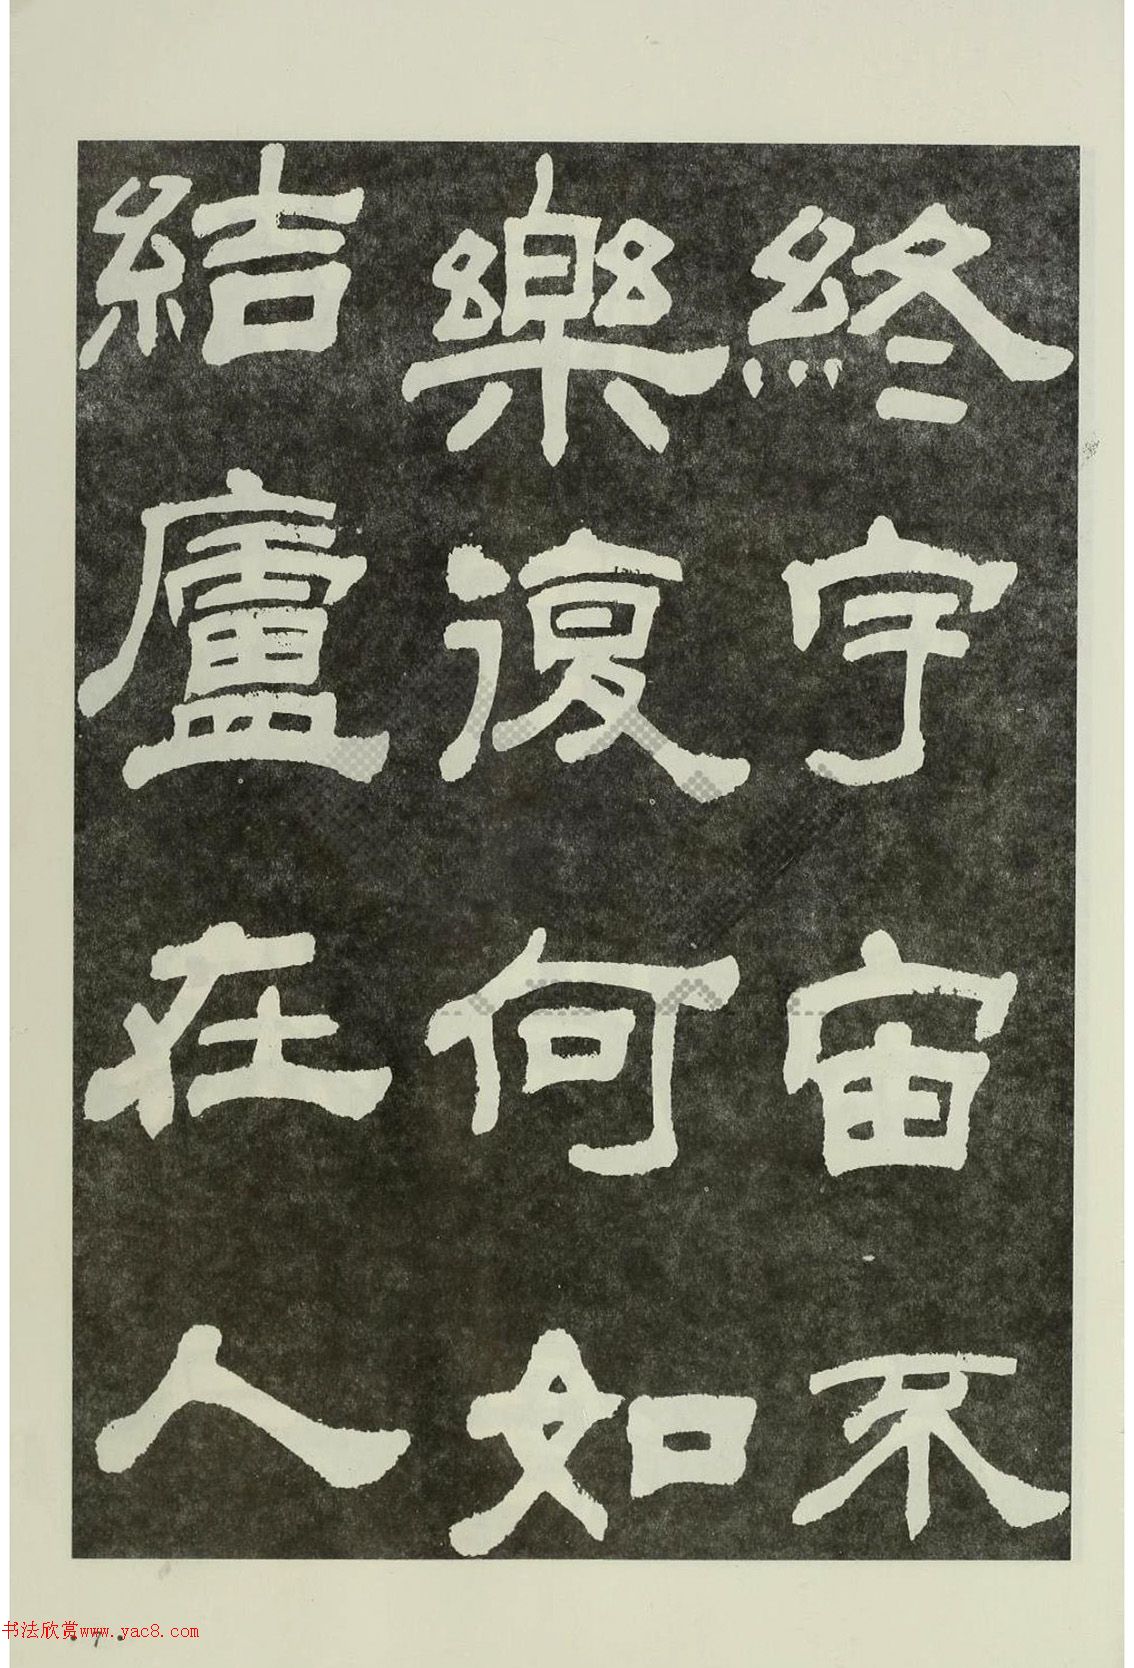 終宇宙不
樂復何如
結廬在人
书法欣赏www.yac8.com
·7·